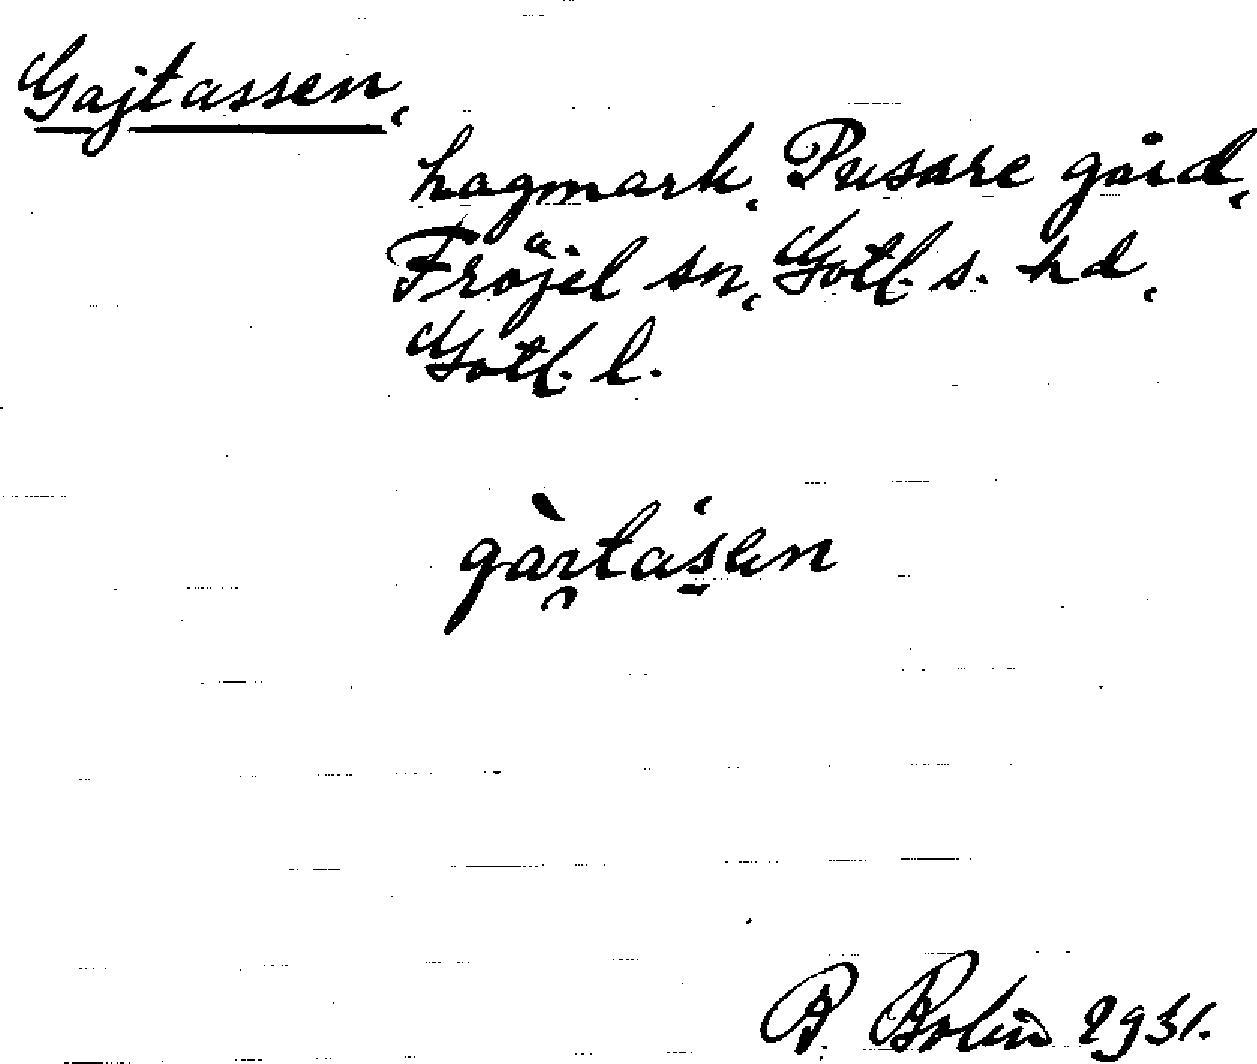 Gajtassen,
hagmark, Pusare gård,
Fröjel sn, Gotl. s. hd,
Gotl. l.
Bolin 1931.